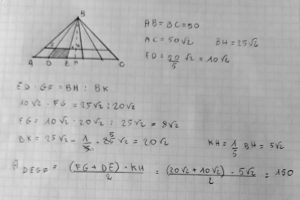 B
A D E H C
AB = BC = 50
AC = 50√2 BH = 25√2
ED = 50/5 √2 = 10√2
ED : GF = BH : BK
10√2 · FG = 25√2 : 20√2
FG = 10√2 · 20√2 : 25√2 = 8√2
BK = 25√2 - 1/5 · 25√2 = 20√2 KH = 1/5 BH = 5√2
A DEGF = (FG + DE) · KH / 2 = (20√2 + 10√2) / 2 · 5√2 = 150